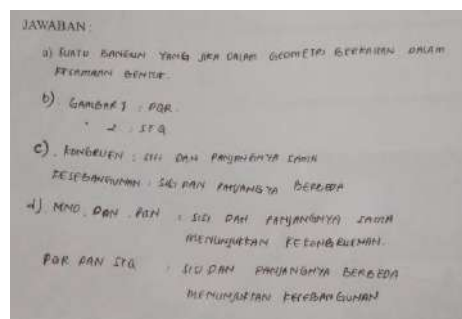 JAWABAN :
a) SUATU BANGUN YANG JIKA DALAM GEOMETRI BERKAITAN DALAM
KESAMAAN BENTUK.
b) GAMBAR 1 : PQR.
" 2 : STQ
c). KONGRUEN : SISI DAN PANJANGNYA SAMA
KESEBANGUNAN : SISI DAN PANJANGYA BERBEDA
d). MNO DAN PQN : SISI DAN PANJANGNYA SAMA
MENUNJUKKAN KEKONGRUENAN.
PQR DAN STQ : SISI DAN PANJANGNYA BERBEDA
MENUNJUKKAN KESEBANGUNAN